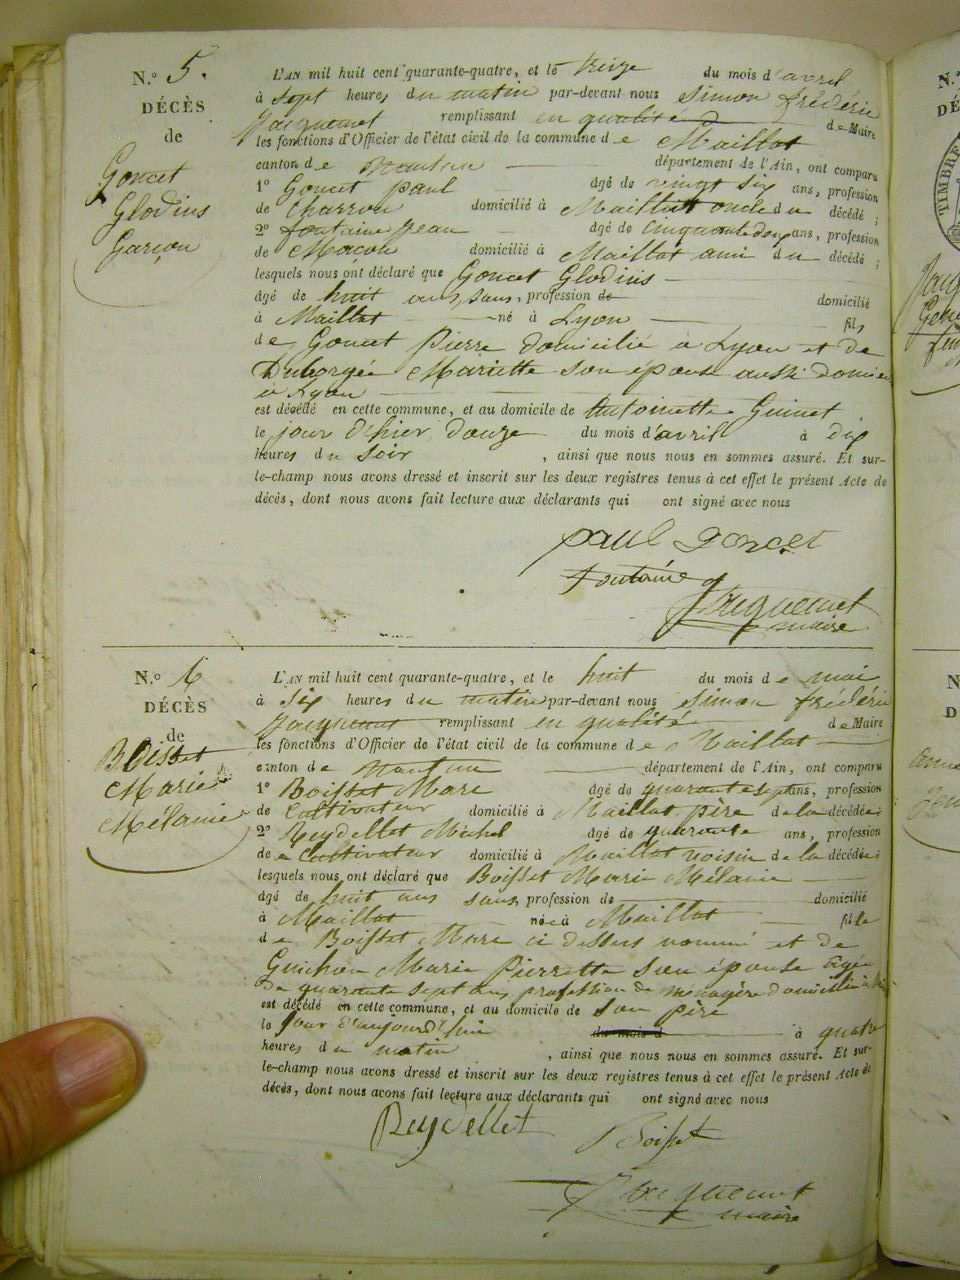 N.º 5.
DÉCÈS
de
Goncet
Glodius
Garçon
L'AN mil huit cent quarante-quatre, et le treize du mois d'avril
à sept heures du matin par-devant nous Simon Frédéric
Jacquemet remplissant en qualité de Maire
les fonctions d'Officier de l'état civil de la commune de Maillat
canton de Nantua département de l'Ain, ont comparu
1º Goncet Paul âgé de vingt six ans, profession
de charron domicilié à Maillat oncle du décédé;
2º fontaine Jean âgé de cinquante deux ans, profession
de Maçon domicilié à Maillat ami du décédé;
lesquels nous ont déclaré que Goncet Glodius
âgé de huit ans, sans, profession de domicilié
à Maillat né à Lyon fils
de Goncet Pierre domicilié à Lyon et de
Mariette son épouse aussi domici
à Lyon
est décédé en cette commune, et au domicile de Antoinette Guinet
le jour d'hier douze du mois d'avril à dix
heures du soir, ainsi que nous nous en sommes assuré. Et sur-
le-champ nous avons dressé et inscrit sur les deux registres tenus à cet effet le présent Acte de
décès, dont nous avons fait lecture aux déclarants qui ont signé avec nous
Paul Goncet
Fontaine
Jacquemet
maire
N.º 6
DÉCÈS
de
Boisset
Marie
Mélanie
L'AN mil huit cent quarante-quatre, et le huit du mois de mai
à six heures du matin par-devant nous Simon frédéric
Jacquemet remplissant en qualité de Maire
les fonctions d'Officier de l'état civil de la commune de Maillat
canton de Nantua département de l'Ain, ont comparu
1º Boisset Marc âgé de quarante sept ans, profession
de Cultivateur domicilié à Maillat père de la décédée;
2º Reydellet Michel âgé de quarante ans, profession
de Cultivateur domicilié à Maillat voisin de la décédée;
lesquels nous ont déclaré que Boisset Marie Mélanie
âgé de huit ans sans, profession de domicilié
à Maillat née à Maillat fille
de Boisset Marc ci dessus nommé et de
Guichon Marie Pierrette son épouse âgée
de quarante sept ans profession de ménagère domiciliée à
est décédé en cette commune, et au domicile de son père
le jour d'aujourd'hui du mois d à quatre
heures du matin, ainsi que nous nous en sommes assuré. Et sur-
le-champ nous avons dressé et inscrit sur les deux registres tenus à cet effet le présent Acte de
décès, dont nous avons fait lecture aux déclarants qui ont signé avec nous
Reydellet
Boisset
Jacquemet
maire